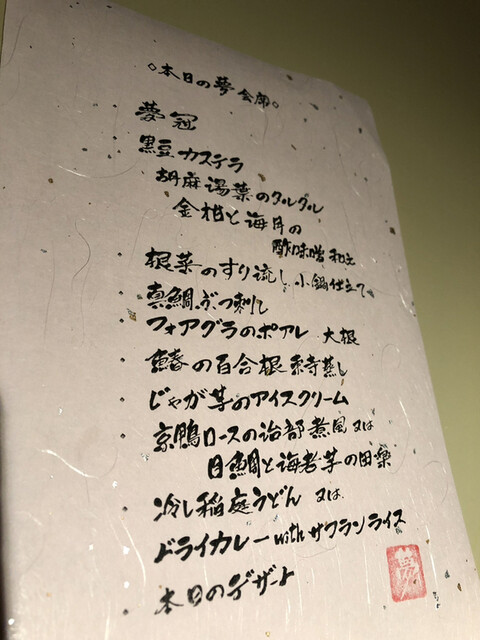 ◇本日の夢会席◇
夢冠
黒豆カステラ
胡麻湯葉のクルクル
金柑と海月の
酢味噌和え
根菜のすり流し 小鍋仕立て
真鯛ぶつ刺し
フォアグラのポアレ 大根
鰆の百合根蒸し
じゃが芋のアイスクリーム
京鴨ロースの治部煮風 又は
目鯛と海老芋の田楽
冷し稲庭うどん 又は
ドライカレー with サフランライス
本日のデザート